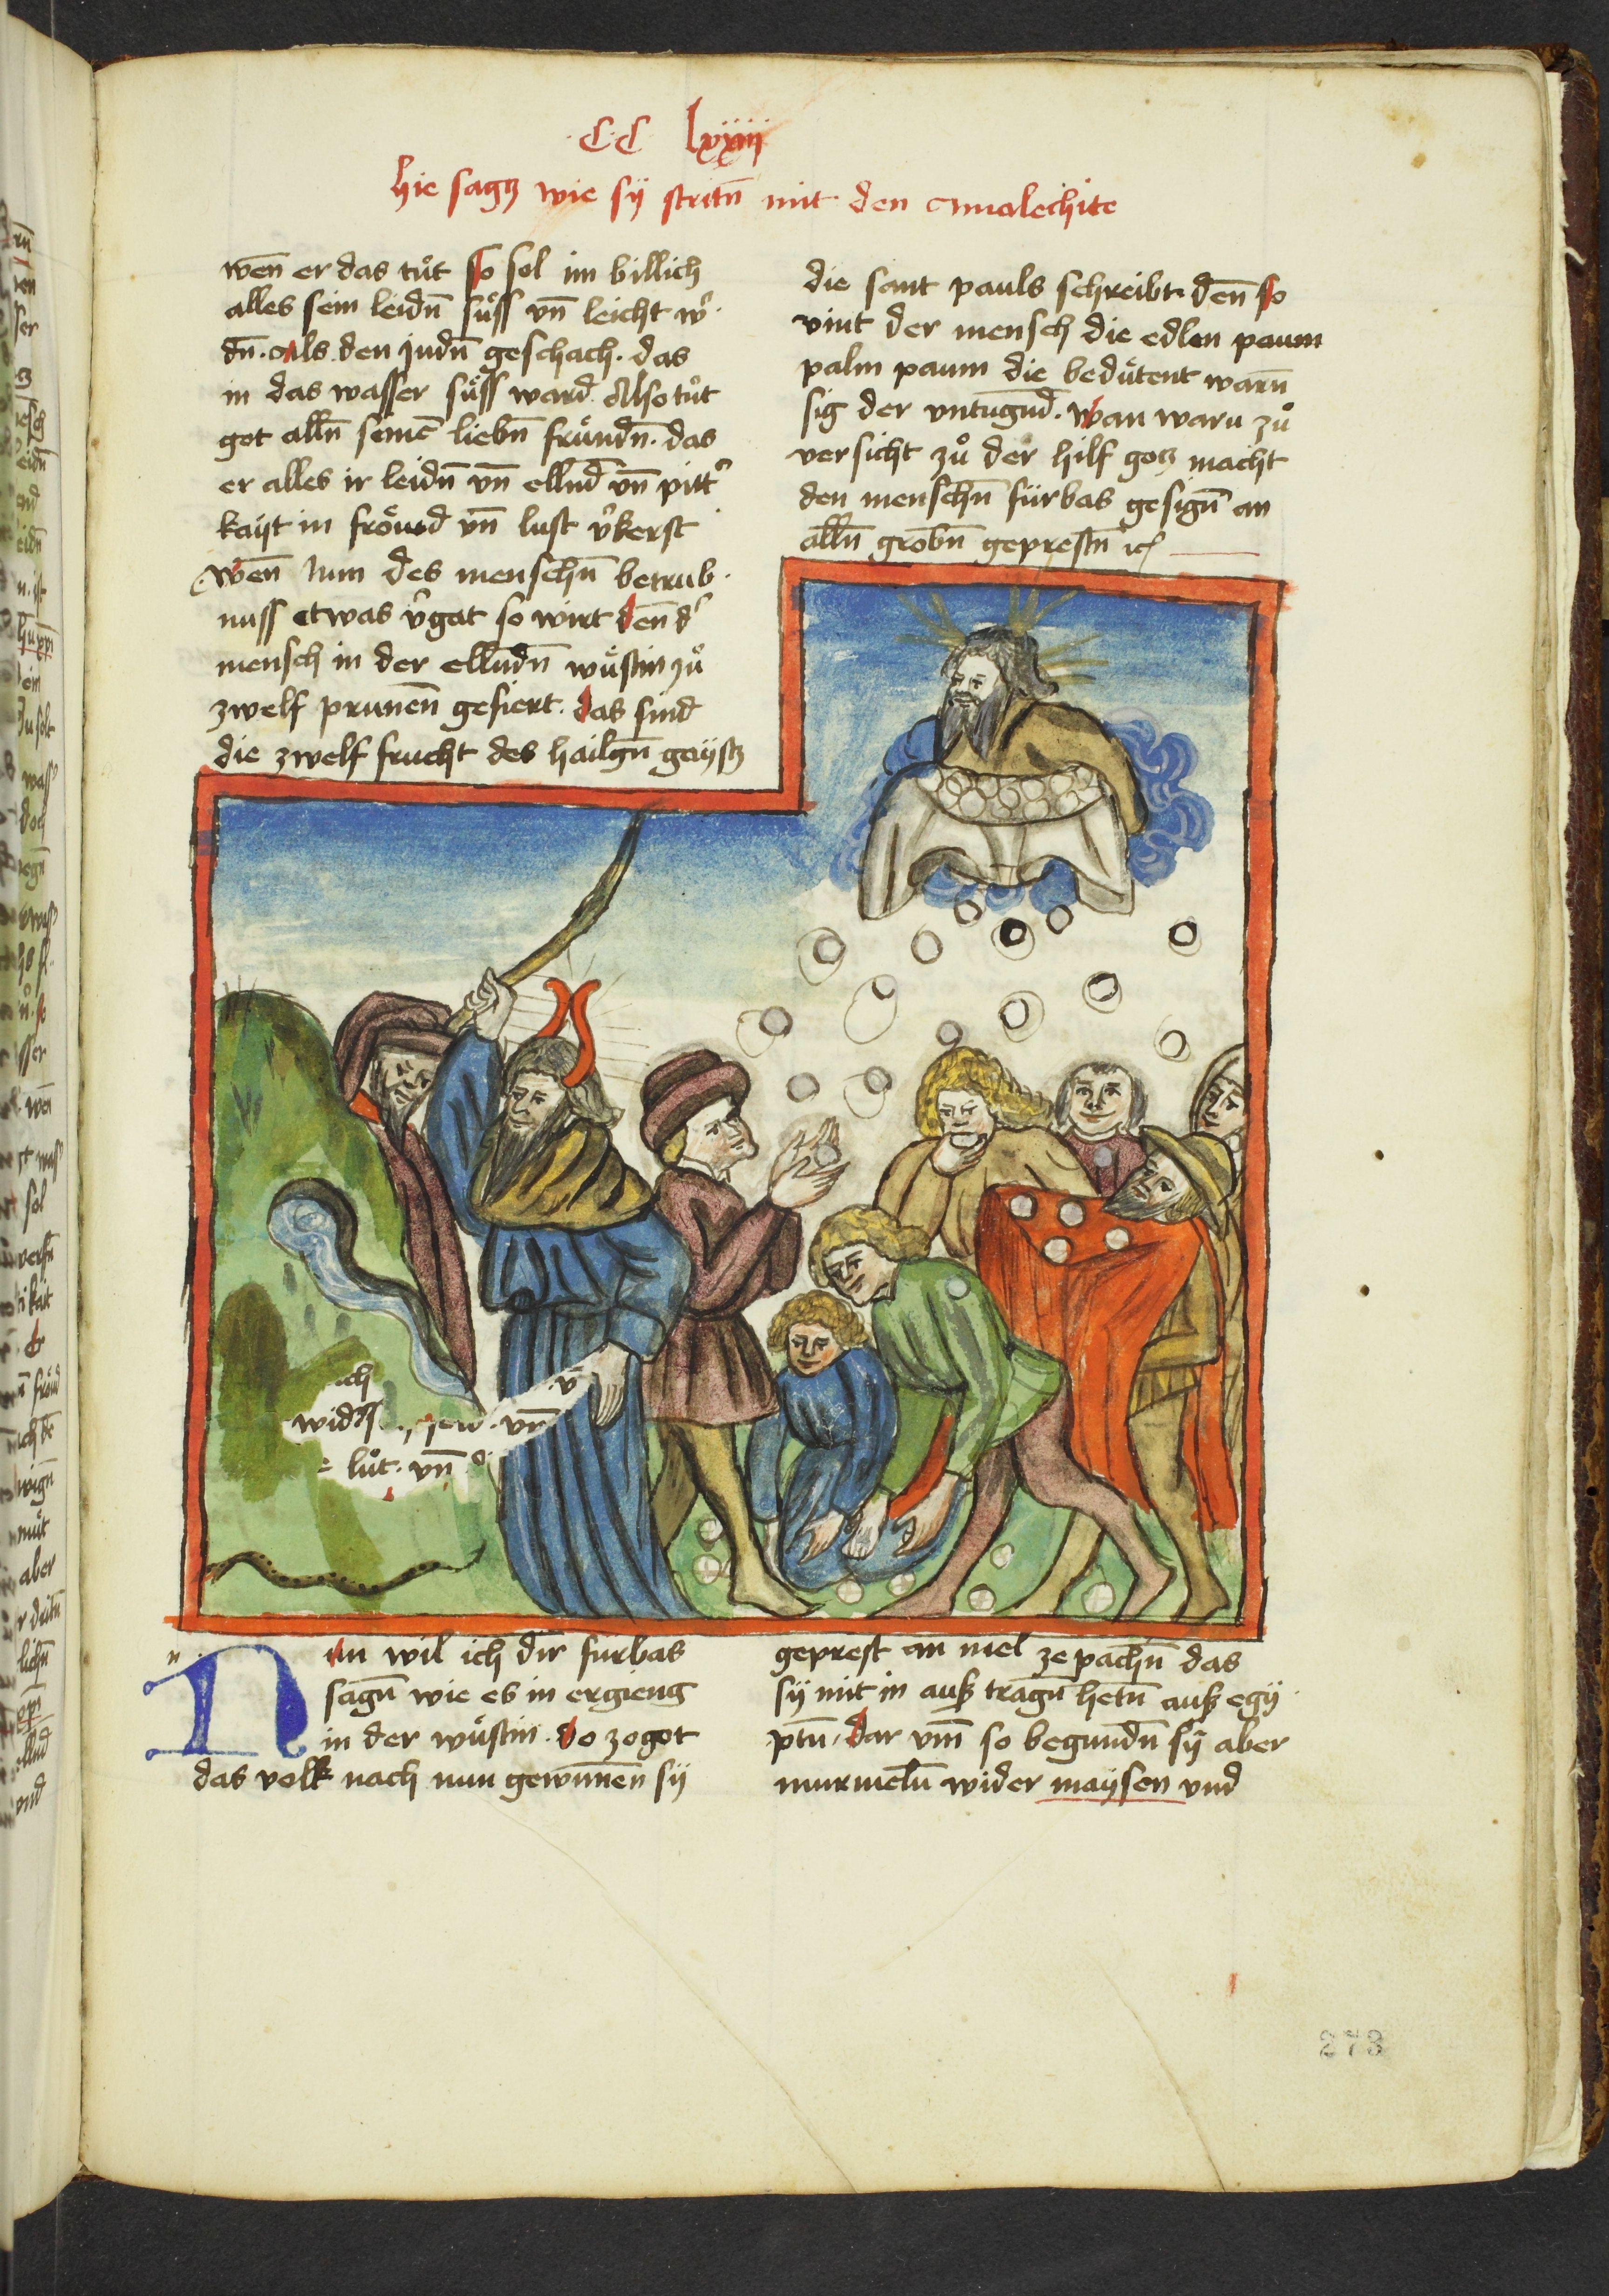 C C lxxiij
hie sagtz wie sÿ stritn̄ mit den Amalechite
wen̄ er das tůt so sol im billich
alles sein leidn̄ sűss vn̄ leicht w͛
dn̄. Als den judn̄ geschach. das
in das wasser sűss ward. Also tůt
got alln̄ seinē liebn̄ frűndn̄. das
er alles ir leidn̄ vn̄ ellnd̄ vn̄ pitt͛
kaÿt in frőwd vn̄ lust v͛kerst
wen̄ Num des menschn̄ betrub
nuss etwas v͛gat so wirt den̄ d͛
mensch in der ellndn̄ wűstin zů
zwelf prunen̄ gefiert. das sind
die zwelf frucht des hailgn̄ gaÿstz
die sant pauls schreibt. den̄ so
vint der mensch die edlen paum
palm paum die bedűtent warn̄
sig der vntugnd̄. wan waru zů
versicht zů der hilf gotz macht
den menschn̄ fűrbas gesign̄ an
alln̄ grobn̄ geprestn̄ ꝛc
ich
wid͛
vn̄
lůt. vn̄
n
Nun wil ich dir furbas
sagn̄ wie es in ergieng
in der wűstin. do zogot
das volk nach nun gewunnen̄ sÿ
geprest an mel ze pachn̄ das
sÿ mit in auß tragn̄ hetn̄ auß egÿ
ptn̄. dar vm̄ so begundn̄ sÿ aber
murmeln̄ wider maÿsen vnd
273